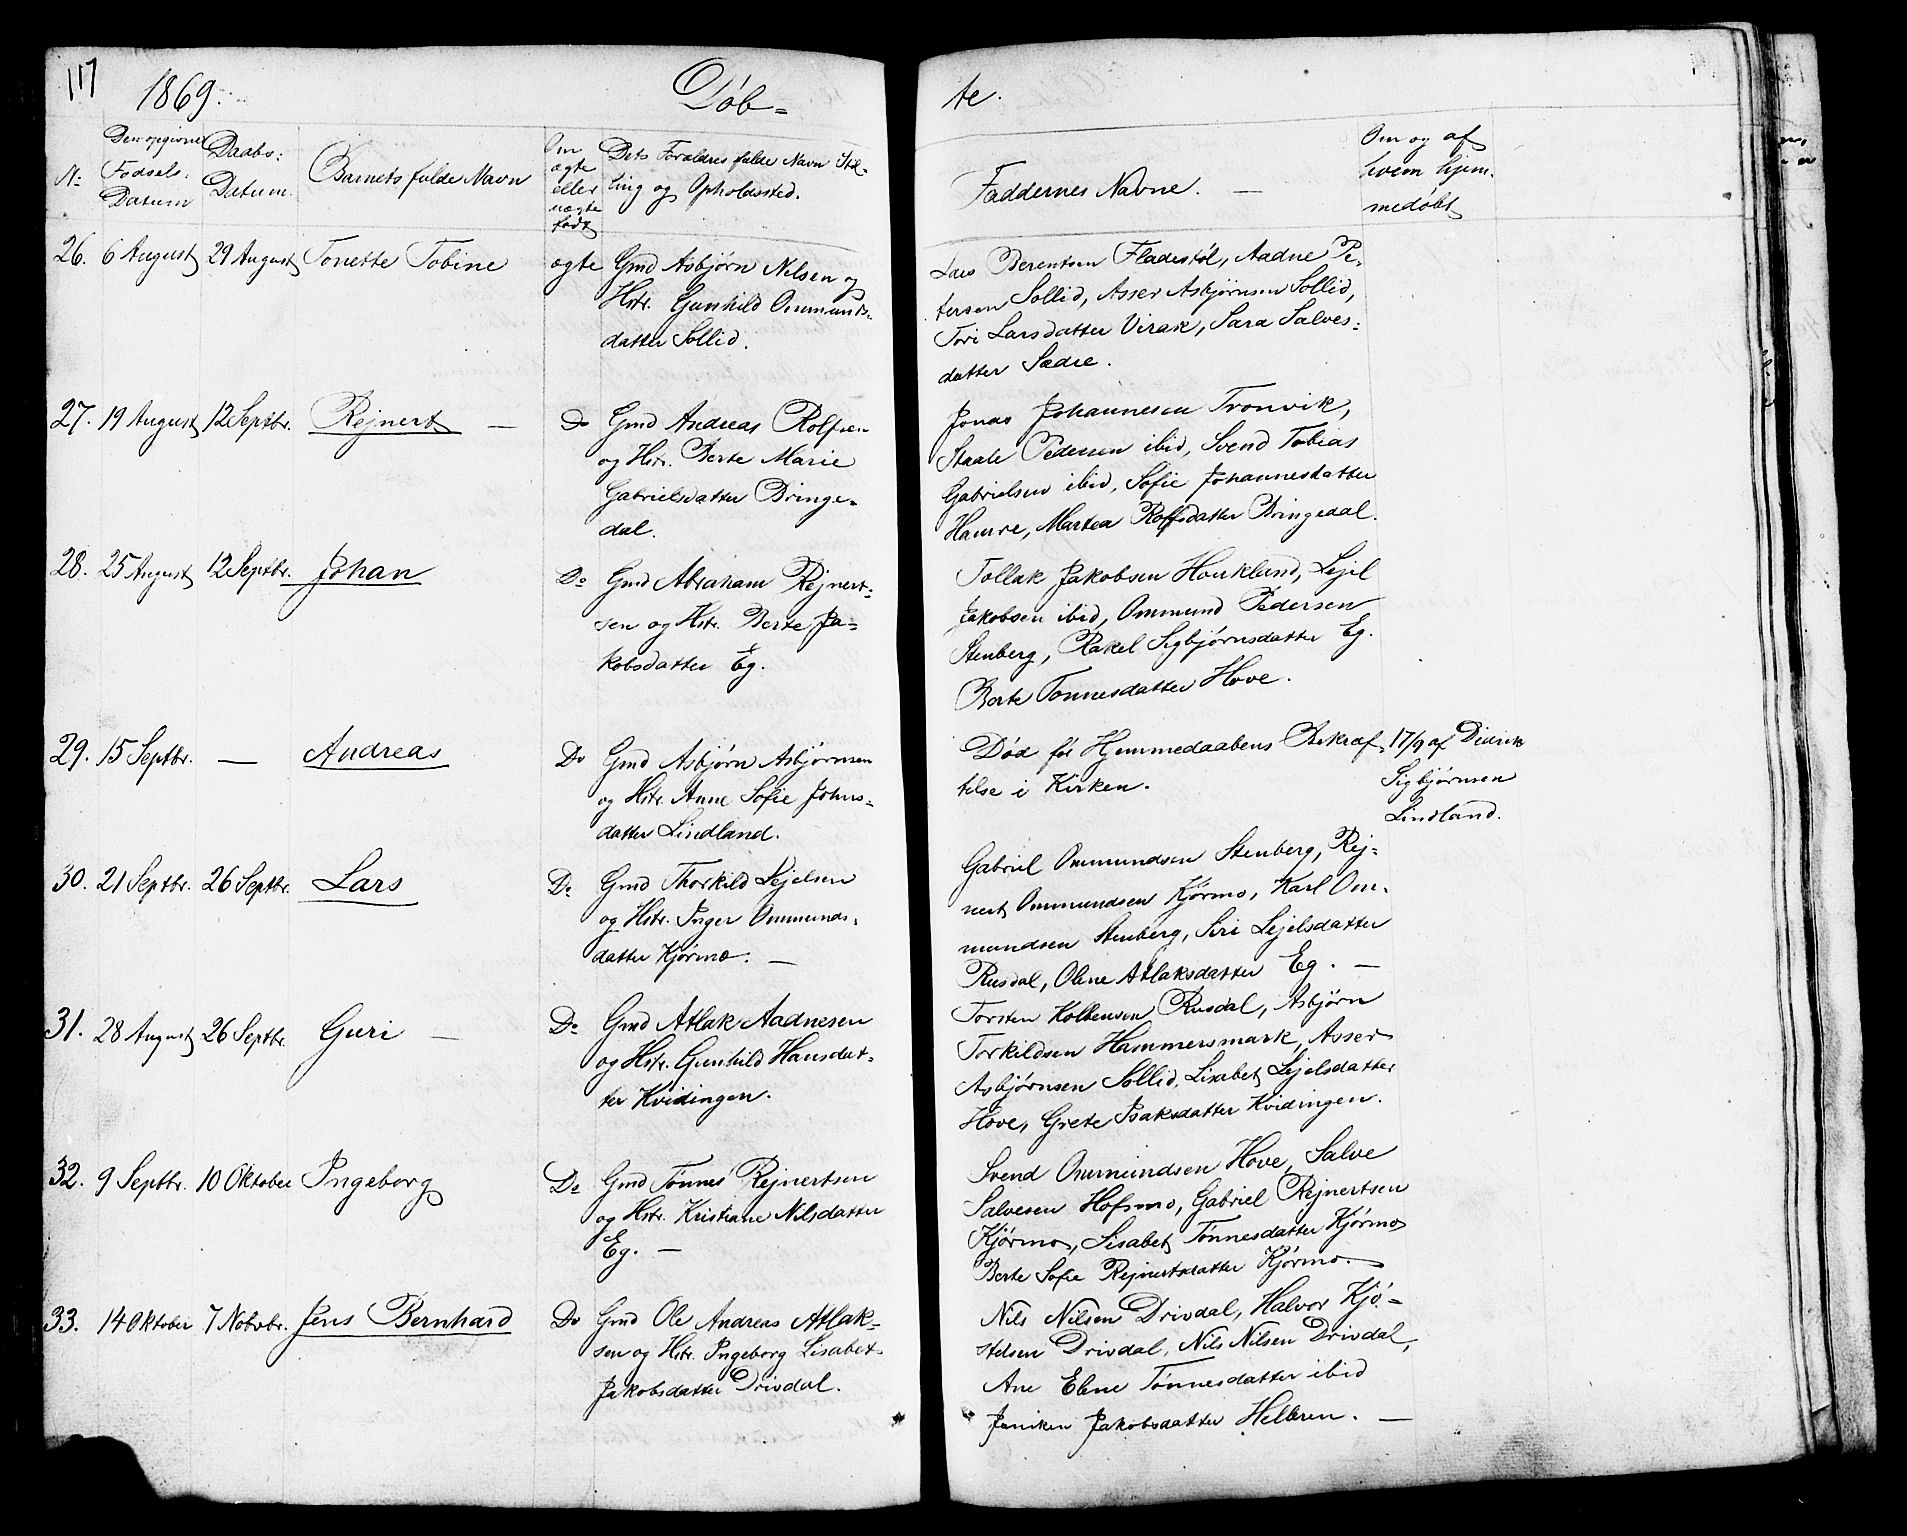 117
1869. Døb= te.
N: Den opgivne Fødsels: Datum
Daabs: Datum.
Barnets fulde Navn
Om ægte eller uægte født
Dets Forældres fulde Navn Stil-
ling og Opholdssted.
Faddernes Navne. —
Om og af
hvem hjem-
medøbt
26. 6 August 29 August Tonette Tobine ægte
Gmd Asbjørn Nilsen og
Hstr. Gunhild Ommunds-
datter Sollid.
Lars Berentsen Fladestøl, Aadne Pe-
tersen Sollid, Asser Asbjørnsen Sollid,
Tori Larsdatter Virak, Sara Salves-
datter Sædre.
27. 19 August 12 Septbr. Rejnert — Do
Gmd Andreas Rolfsen
og Hstr. Berte Marie
Gabrielsdatter Bringe-
dal.
Jonas Johannesen Tronvik,
Staale Pedersen ibid, Svend Tobias
Gabrielsen ibid, Sofie Johannesdatter
Hamre, Martea Rolfsdatter Bringedal.
28. 25 August 12 Septbr. Johan Do
Gmd Abraham Rejnert-
sen og Hstr. Berte Ja-
kobsdatter Eg.
Tollak Jakobsen Houkland, Lejel
Jakobsen ibid, Ommund Pedersen
Stenberg, Rakel Sigbjørnsdatter Eg.
Berte Tønnesdatter Hove.
29. 15 Septbr. — Andreas Do
Gmd Asbjørn Asbjørnsen
og Hstr. Anne Sofie Johns-
datter Lindland.
Død før Hjemmedaabens Bekræf-
telse i Kirken.
17/9 af Didrik
Sigbjørnsen
Lindland.
30. 21 Septbr. 26 Septbr. Lars Do
Gmd Thorkild Lejelsen
og Hstr. Inger Ommunds-
datter Kjørmo. —
Gabriel Ommundsen Stenberg, Rej-
nert Ommundsen Kjørmo, Karl Om-
mundsen Stenberg, Siri Lejelsdatter
Rusdal, Olene Atlaksdatter Eg. —
31. 28 August 26 Septbr. Guri — Do
Gmd Atlak Aadnesen
og Hstr. Gunhild Hansdat-
ter Kvidingen.
Torsten Kolbensen Rusdal, Asbjørn
Torkildsen Hammersmark, Asser
Asbjørnsen Sollid, Lisabet Lejelsdatter
Hove, Grete Isaksdatter Kvidingen.
32. 9 Septbr. 10 Oktober Ingeborg Do
Gmd Tønnes Rejnertsen
og Hstr. Kristiane Nilsdatter
Eg. —
Svend Ommundsen Hove, Salve
Salvesen Hofsmo, Gabriel Rejnertsen
Kjørmo, Lisabet Tønnesdatter Kjørmo
Berte Sofie Rejnertsdatter Kjørmo. —
33. 14 Oktober 7 Novbr. Jens Bernhard Do
Gmd Ole Andreas Atlak-
sen og Hstr. Ingeborg Lisabet
Jakobsdatter Drivdal.
Nils Nilsen Drivdal, Halvor Kjø-
stelsen Drivdal, Nils Nilsen Drivdal,
Ane Elene Tønnesdatter ibid
Janiken Jakobsdatter Helleren. —